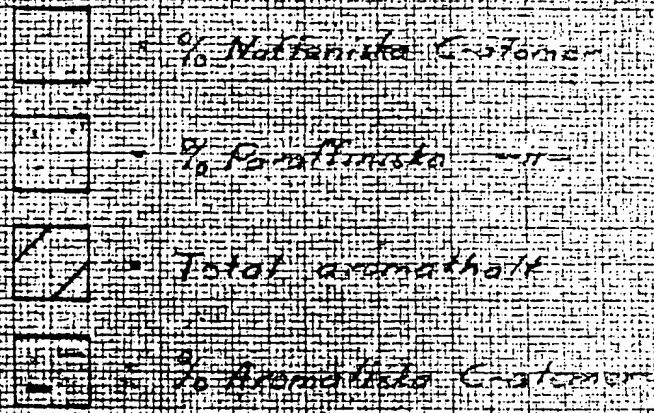 = % Naftenska C-atomer
= % Paraffinska -"-
= Total aromathalt
= % Aromatiska C-atomer